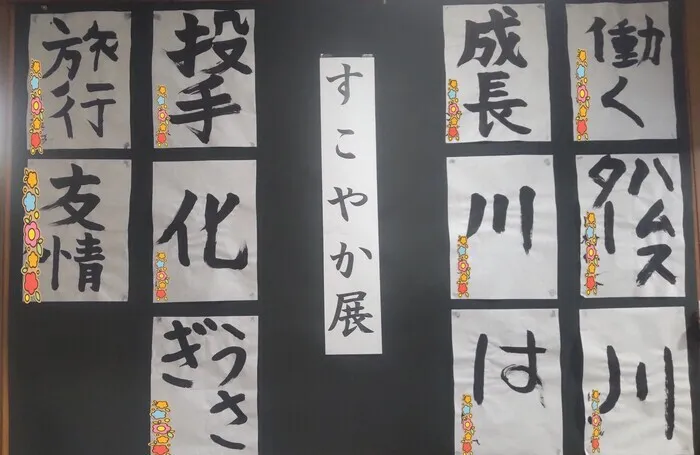 働く
ハムス
ター
川
成長
川
は
すこやか展
投手
化
うさ
ぎ
旅行
友情